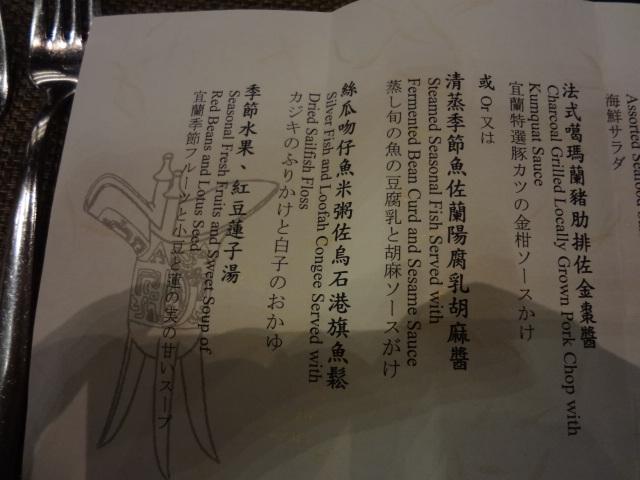 Assorted Seafood
海鮮サラダ
法式噶瑪蘭豬肋排佐金棗醬
Charcoal Grilled Locally Grown Pork Chop with
Kumquat Sauce
宜蘭特選豚カツの金柑ソースかけ
或 Or 又は
清蒸季節魚佐蘭陽腐乳胡麻醬
Steamed Seasonal Fish Served with
Fermented Bean Curd and Sesame Sauce
蒸し旬の魚の豆腐乳と胡麻ソースがけ
絲瓜吻仔魚米粥佐烏石港旗魚鬆
Silver Fish and Loofah Congee Served with
Dried Sailfish Floss
カジキのふりかけと白子のおかゆ
季節水果、紅豆蓮子湯
Seasonal Fresh Fruits and Sweet Soup of
Red Beans and Lotus Seed
宜蘭季節フルーツと小豆と蓮の実の甘いスープ